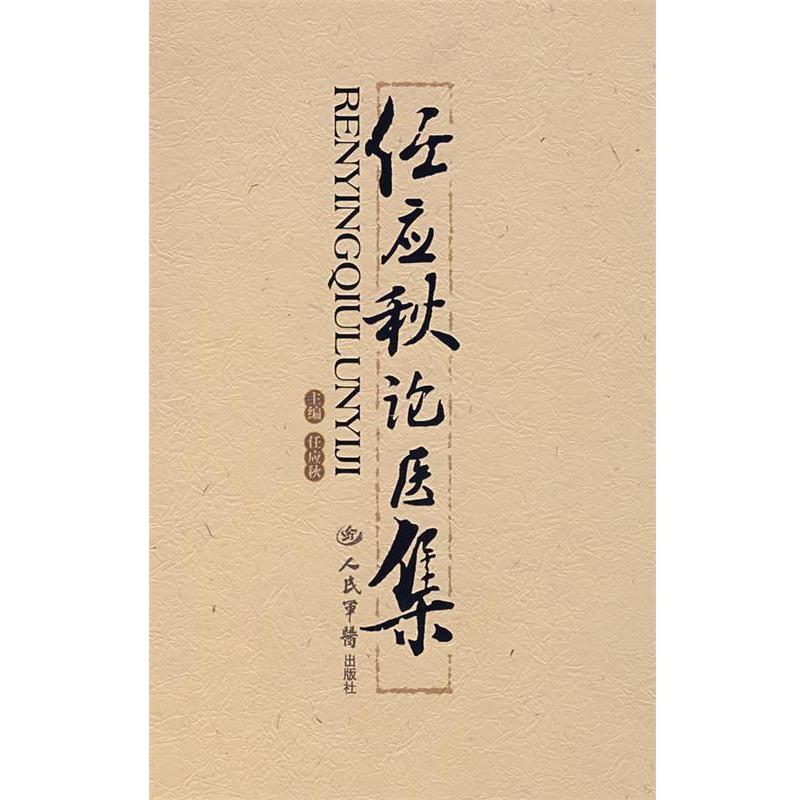 任应秋论医集
RENYINGQIULUNYIJI
主编 任应秋
人民军醫出版社